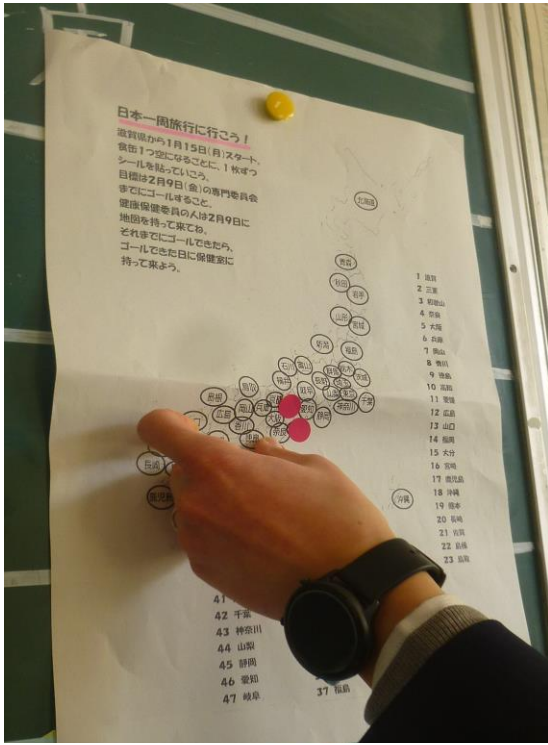 日本一周旅行に行こう！
滋賀県から1月15日(月)スタート。
食缶1つ空になるごとに、1枚ずつ
シールを貼っていこう。
目標は2月9日(金)の専門委員会
までにゴールすること。
健康保健委員の人は2月9日に
地図を持って来てね。
それまでにゴールできたら、
ゴールできた日に保健室に
持って来よう。
北海道
青森
秋田
岩手
山形
宮城
新潟
福島
石川
富山
福井
岐阜
茨城
鳥取
島根
広島
岡山
兵庫
大阪
愛知
静岡
神奈川
千葉
香川
奈良
長崎
鹿児島
沖縄
1 滋賀
2 三重
3 和歌山
4 奈良
5 大阪
6 兵庫
7 岡山
8 香川
9 徳島
10 高知
11 愛媛
12 広島
13 山口
14 福岡
15 大分
16 宮崎
17 鹿児島
18 沖縄
19 熊本
20 長崎
21 佐賀
22 島根
23 鳥取
37 福島
41
42 千葉
43 神奈川
44 山梨
45 静岡
46 愛知
47 岐阜